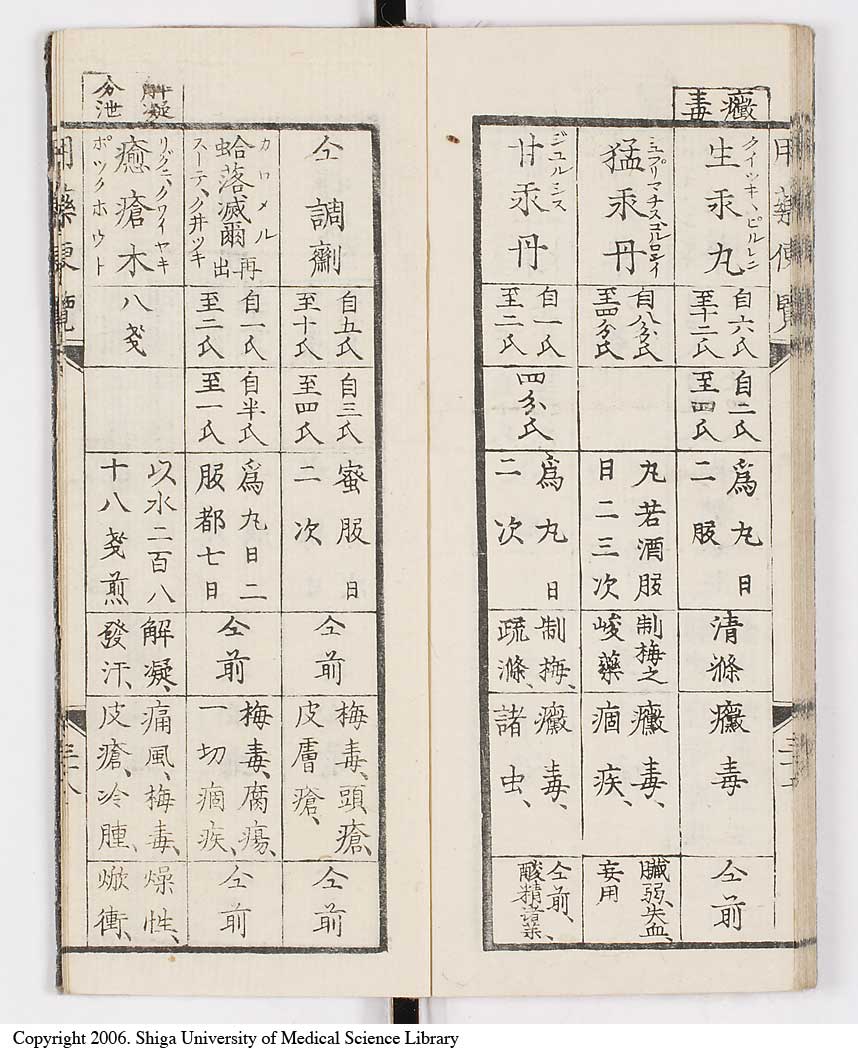 用藥便覽
黴毒
クイツキ、ピルレン
生汞丸
自六氏
至十二氏
自二氏
至四氏
爲丸日
二服
清滌
黴毒
仝前
猛汞丹
自八分氏
至四分氏
丸若酒服
日二三次
制梅之
峻藥
黴毒、
痼疾、
臟弱、失血、
妄用
ジュルシス
甘汞丹
自一氏
至二氏
四分氏
爲丸日
二次
制梅、
疏滌、
黴毒、
諸虫、
仝前、
仝調劑
自五氏
至十氏
自三氏
至四氏
蜜服日
二次
仝前
梅毒、頭瘡、
皮膚瘡、
仝前
カロメル
蛤落滅爾再出
スーテ、クヰツキ
自一氏
至二氏
自半氏
至一氏
爲丸日二
服都七日
仝前
梅毒、腐瘍、
一切痼疾、
仝前
解凝
分泄
リグニ、クワイヤキ
癒瘡木
ポックホウト
八戔
以水二百八
十八戔煎
解凝、
發汗、
痛風、梅毒、
皮瘡、冷腫、
燥性、
焮衝、
用藥便覽
三十八
Copyright 2006. Shiga University of Medical Science Library